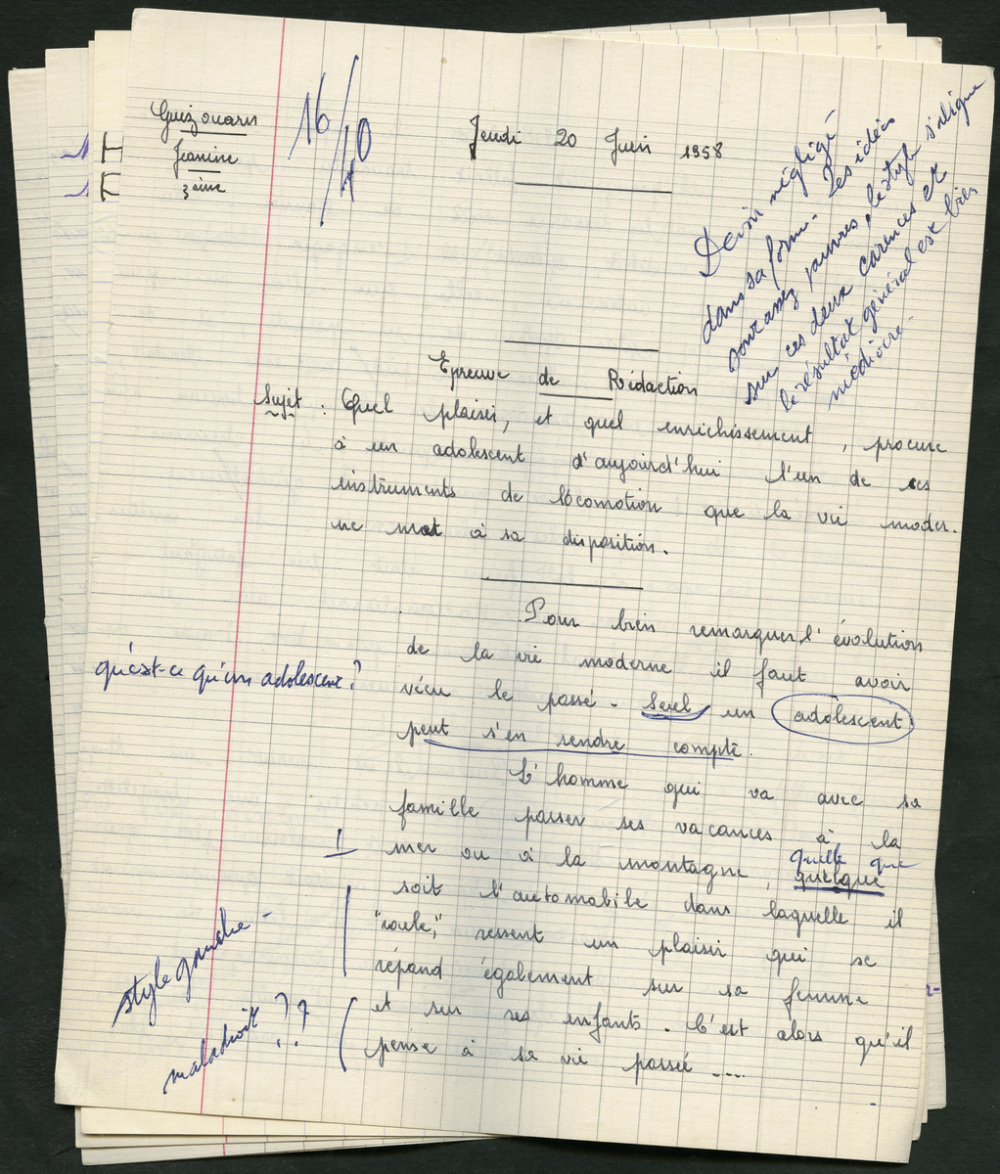 Guizouarn
Jeanine
3ème
16/40
Jeudi 20 Juin 1958
Devoir négligé
dans sa forme. Les idées
sont assez pauvres, le style s'aligne
sur ces deux carences et
le résultat général est bien
médiocre.
Epreuve de Rédaction
Sujet : Quel plaisir, et quel enrichissement, procure
à un adolescent d'aujourd'hui l'un de ses
instruments de locomotion que la vie moder-
ne met à sa disposition.
Pour bien remarquer l'évolution
de la vie moderne il faut avoir
qu'est-ce qu'un adolescent ?
vécu le passé. Seul un adolescent
peut s'en rendre compte.
L'homme qui va avec sa
famille passer ses vacances à la
mer ou à la montagne, quelque
quelle que
soit l'automobile dans laquelle il
"roule", ressent un plaisir qui se
répand également sur sa femme
style gauche -
et sur ses enfants. C'est alors qu'il
pense à sa vie passée ....
maladroit ??